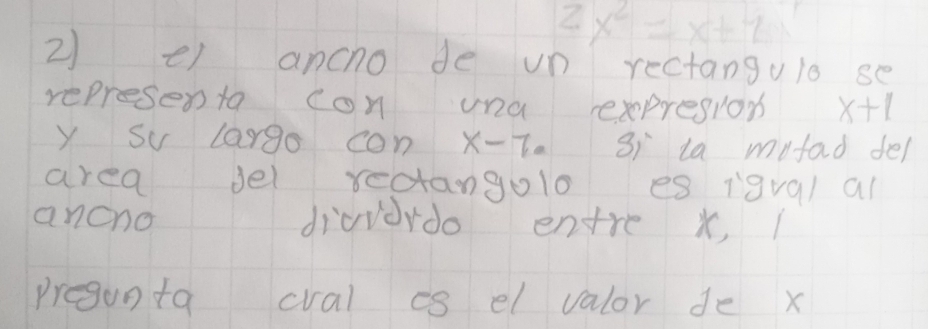 2x² = x+1
2) el ancho de un rectangulo se
representa con una expresion x+1
y su largo con x-1. Si la mitad del
area del rectangolo es igual al
ancho dividido entre x, 1
Pregunta cual es el valor de x